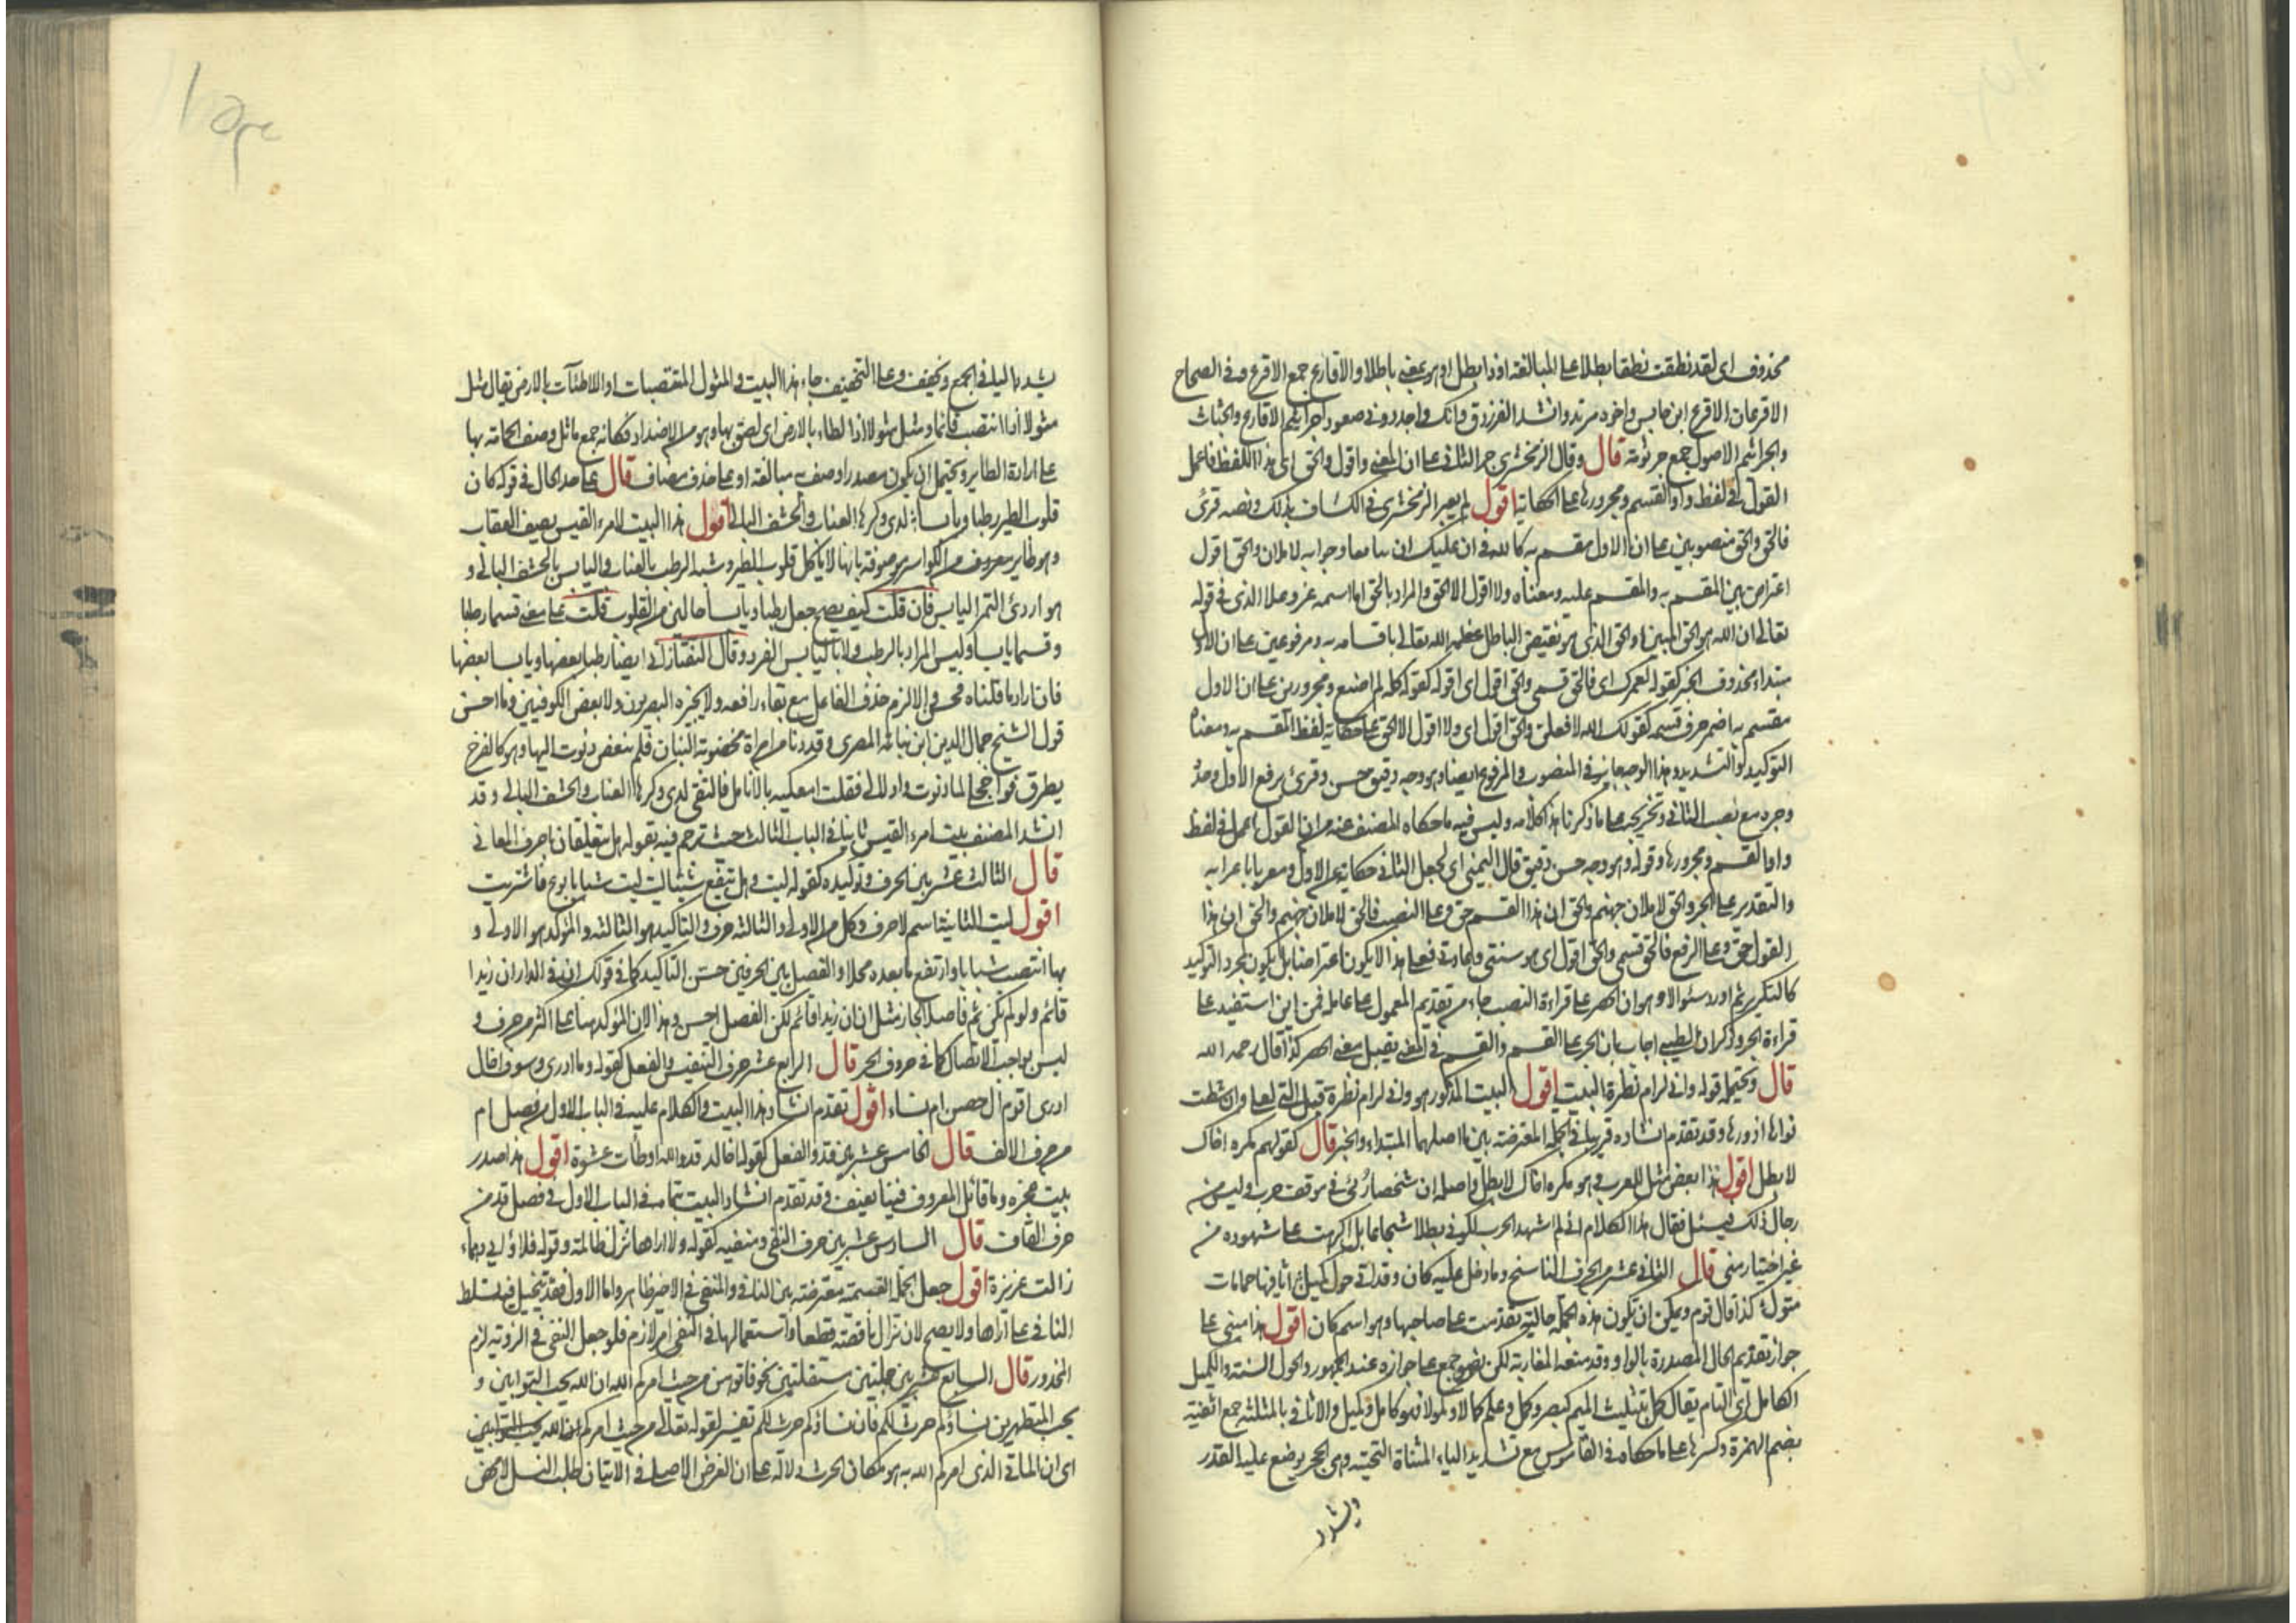 محذوف اى لقد نطقت نطقا بطلا على المبالغة او ذا بطل او هو بمعنى باطلا والاقارع جمع الاقرع وفى الصحاح
الاقرعان الاقرع ابن حابس واخوه مرثد وانشد الفرزدق فانك واجد دونى صعودا جراثيم الاقارع والحتات
والجراثيم الاصول جمع جرثومة قال وقال الزمخشرى جر الثانى على ان المعنى واقول والحق اى هذا اللفظ فاعمل
القول فى لفظ واو القسم ومجرورها على الحكاية اقول لم يعبر الزمخشرى فى الكشاف بذلك ونصه قرئ
فالحق والحق منصوبين على ان الاول مقسم به كالله فى ان عليك الله ان تبايعا وجوابه لاملان والحق اقول
اعتراض بين المقسم به والمقسم عليه ومعناه ولا اقول الا الحق والمراد بالحق اما اسمه عز وعلا الذى فى قوله
تعالى ان الله هو الحق المبين او الحق الذى هو نقيض الباطل عظمه الله تعالى باقسامه به ومرفوعين على ان الاول
مبتداء محذوف الخبر كقوله لعمرك اى فالحق قسمى والحق اقول اى اقوله كقوله كله لم اصنع ومجرورين على ان الاول
مقسم به اضمر حرف قسمه كقولك الله لافعلن والحق اقول اى ولا اقول الا الحق على حكاية لفظ المقسم به ومعناه
التوكيد والتشديد وهذا الوجه جايز فى المنصوب والمرفوع ايضا وهو وجه دقيق حسن وقرئ برفع الاول وجره
وجره مع نصب الثانى وتخريجه على ما ذكرنا هذا كلامه وليس فيه ما حكاه المصنف عنه من ان القول اعمل فى لفظ
واو القسم ومجرورها وقوله وهو وجه حسن دقيق قال اليمنى اى لجعل الثانى حكاية عن الاول ومعربا باعرابه
والتقدير على الجر والحق لاملان جهنم والحق ان هذا القسم حق وعلى النصب فالحق لاملان جهنم والحق ان هذا
القول حق وعلى الرفع فالحق قسمى والحق اقول اى هو سنتى وعادتى فعلى هذا لا يكون اعتراضا بل يكون لمجرد التوكيد
كالتكرير ثم اورد سئوالا وهو ان الحصر على قراءة النصب جاء من تقديم المعمول على عامله فمن اين استفيد على
قراءة الجر وذكر ان الطيبى اجاب بان الجر على القسم والقسم فى المعنى يقبل معنى الحصر كذا قال رحمه الله
قال ويحتمله قوله وانى لرام نظرة البيت اقول البيت المذكور هو وانى لرام نظرة قبل التى لعلى وان شطت
نواها ازورها وقد تقدم انشاده قريبا فى الجملة المعترضة بين ما اصلهما المبتداء والخبر قال كقولهم مكره اخاك
لا بطل اقول هذا بعض مثل للعرب وهو مكره اخاك لا بطل واصله ان شخصا رُئى فى موقف حرب وليس من
رجال ذلك فسئل فقال هذا الكلام اى لم اشهد الحرب لكونى بطلا شجاعا بل اكرهت على شهوده من
غير اختيار منى قال الثانى عشر بين الحرف الناسخ وما دخل عليه كان وقد اتى حول كميل اثافيها حمامات
مثول كذا قال قوم ويمكن ان تكون هذه الجملة حالية تقدمت على صاحبها وهو اسم كان اقول هذا مبنى على
جواز تقديم الحال المصدرة بالواو وقد منعه المغاربة لكن نصوص جمع على جوازه عند الجمهور والحول السنة والكميل
الكامل اى التام يقال كمل بتثليث الميم كبصر وكمل وعلم كمالا وكمولا فهو كامل وكميل والاثافى بالمثلثة جمع اثفية
بضم الهمزة وكسرها على ما حكاه فى القاموس مع تشديد الياء المثناة التحتية وهى الحجر يوضع عليه القدر
ويشدد
يشدد الياء فى الجمع ويخفف وعلى التخفيف جاء هذا البيت والمثول المنتصبات او اللاطئات بالارض يقال مثل
مثولا اذا انتصب قائما ومثل مثولا اذا لطاء بالارض اى لصق بها وهو من الاضداد فكانه جمع ماثل وصف الحمامة بها
على ارادة الطاير ويحتمل ان يكون مصدرا وصف به مبالغة او على حذف مضاف قال على حد الحال فى قوله كان
قلوب الطير رطبا ويابسا لدى وكرها العناب والحشف البالى اقول هذا البيت لامرء القيس يصف العقاب
وهو طاير معروف من الكواسر موصوفة بانها لا تاكل قلوب الطير وشبه الرطب بالعناب واليابس بالحشف البالى و
هو اردئ التمر اليابس فان قلت كيف يصح جعل رطبا ويابسا حالين من القلوب قلت على معنى قسما رطبا
وقسما يابسا وليس المراد بالرطب ولا باليابس الفرد وقال التفتازانى ايضا رطبا بعضها ويابسا بعضها
فان اراد ما قلناه فمحق والا لزم حذف الفاعل مع بقاء رافعه ولا يجيزه البصريون ولا بعض الكوفيين وما احسن
قول الشيخ جمال الدين ابن نباتة المصرى وقد دنا من امراة مخضوبة البنان فلم ينعض دنوت اليها وهو كالفرخ
يطرق فواخجلى لما دنوت وادلالى فقلت امعكيه بالانامل فالتقى لدى وكرها العناب والحشف البالى وقد
انشد المصنف بيت امرء القيس ثانيا فى الباب الثالث حيث ترجم فيه بقوله هل يتعلقان باحرف المعانى
قال الثالث عشر بين الحرف وتوكيده كقوله ليت وهل ينفع شيئا ليت ليت شبابا بوع فاشتريت
اقول ليت الثانية اسم لا حرف وكل من الاولى والثالثة حرف والتاكيد هو الثالثة والمؤكد هو الاولى و
بها انتصب شبابا وارتفع ما بعده محلا والفصل بين الحرفين حسّن التاكيد كما فى قولك ان فى الدار ان زيدا
قائم ولو لم يكن ثم فاصل لجاز مثل ان ان زيدا قائم لكن الفصل احسن وهذا لان المؤكد هنا على اكثر من حرف و
ليس بواجب الاتصال كما فى حروف الجر قال الرابع عشر حرف التنفيس والفعل كقوله وما ادرى وسوف اخال
ادرى اقوم ال حصن ام نساء اقول تقدم انشاد هذا البيت والكلام عليه فى الباب الاول من فصل ام
من حرف الالف قال الخامس عشر بين قد والفعل كقوله اخالد قد والله اوطات عشوة اقول هذا صدر
بيت عجزه وما قائل المعروف فينا يعنف وقد تقدم انشاد البيت بتمامه فى الباب الاول فى فصل قد من
حرف القاف قال السادس عشر بين حرف النفى ومنفيه كقوله ولا اراها تزال ظالمة وقوله فلا وابى دهماء
زالت عزيزة اقول جعل الجملة القسمية معترضة بين النافى والمنفى فى الاخير ظاهر واما الاول فقد يتخيل فيه تسلط
النافى على اراها ولا يصح لان تزال ناقصة قطعا واستعمالها فى النفى امر لازم فلو جعل النفى فى الرؤية لزم
المحذور قال السابع عشر بين جملتين مستقلتين نحو فاتوهن من حيث امركم الله ان الله يحب التوابين و
يحب المتطهرين نساؤكم حرث لكم فان نساؤكم حرث لكم تفسير لقوله تعالى من حيث امركم الله ان الله يحب التوابين
اى ان الماتى الذى امركم الله به هو مكان الحرث دلالة على ان الغرض الاصلى فى الاتيان طلب النسل لا محض